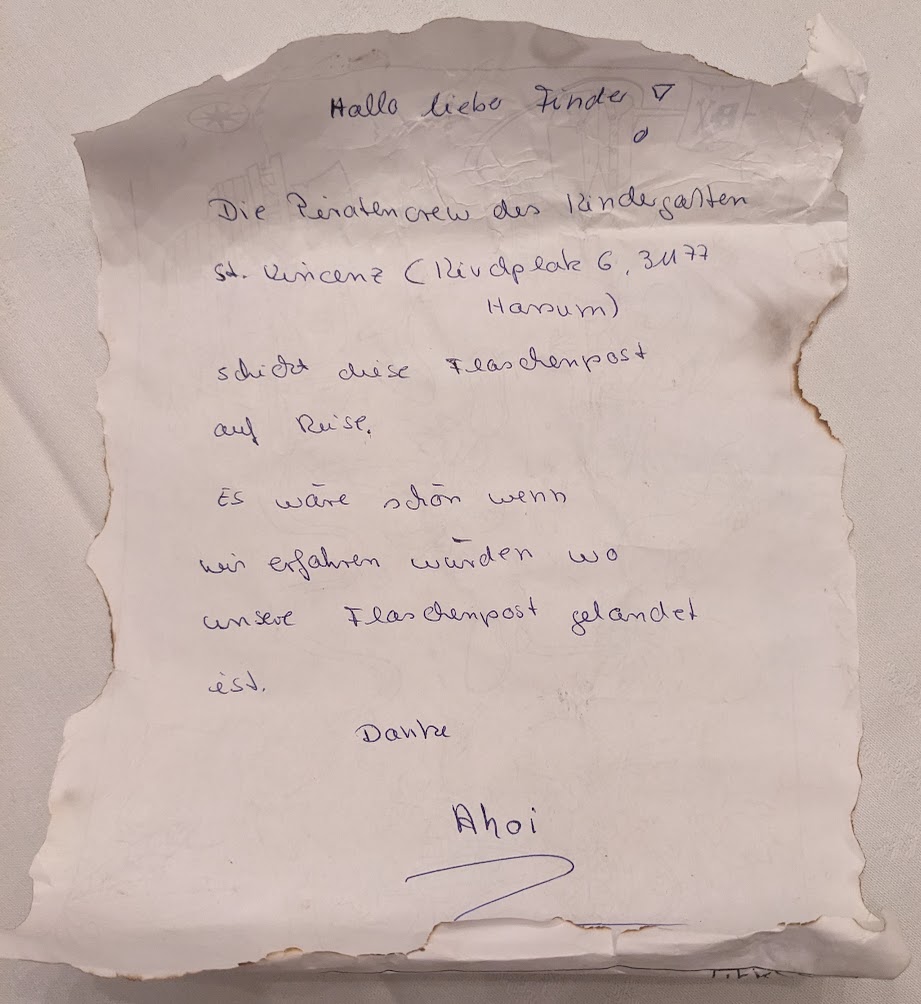 Hallo lieber Finder!
Die Piratencrew des Kindergarten
St. Vincenz (Kirchplatz 6, 31177
Harsum)
schickt diese Flaschenpost
auf Reise.
Es wäre schön wenn
wir erfahren würden wo
unsere Flaschenpost gelandet
ist.
Danke
Ahoi